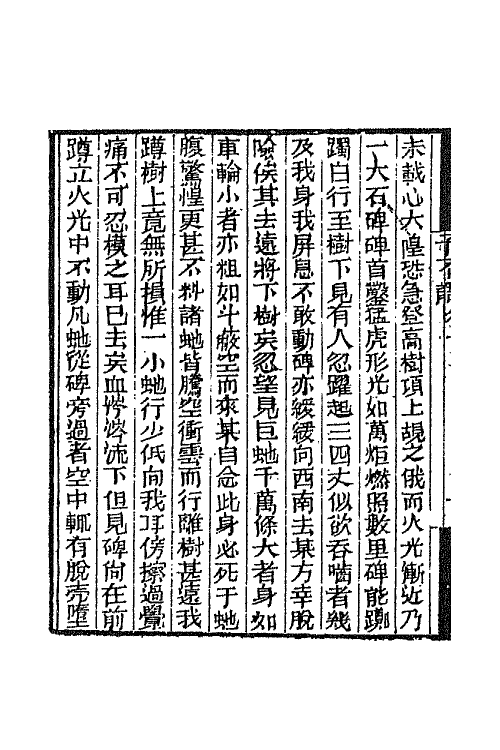 未載心大惶恐急登高樹項上覘之俄而火光漸近乃
一大石碑碑首鑿猛虎形光如萬炬燃照數里碑能躑
躅自行至樹下見有人忽躍起三四丈似欲吞嚙者幾
及我身我屏息不敢動碑亦緩緩向西南去某方幸脫
險俟其去遠將下樹矣忽望見巨虵千萬條大者身如
車輪小者亦粗如斗蔽空而來某自念此身必死于虵
腹驚惶更甚不料諸虵皆騰空衝雲而行離樹甚遠我
蹲樹上竟無所損惟一小虵行少低向我耳傍擦過覺
痛不可忍模之耳已去矣血涔涔流下但見碑尙在前
蹲立火光中不動凡虵從碑旁過者空中輒有脫壳墮